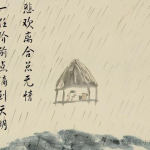 悲欢离合总无情
一任阶前点滴到天明